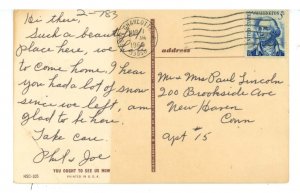 2-783
Hi there,
Such a beautiful
place here, we
to come home. I hear
you had a lot of snow
since we left, am
glad to be here.
Take care.
Phil & Joe
YOU OUGHT TO SEE US NOW
NSC-105
PRINTED IN U.S.A.
CHARLOTTE
address
WASHINGTON
5
Mr & Mrs Paul Lincoln
200 Brookside Ave
New Haven
Conn
Apt #15